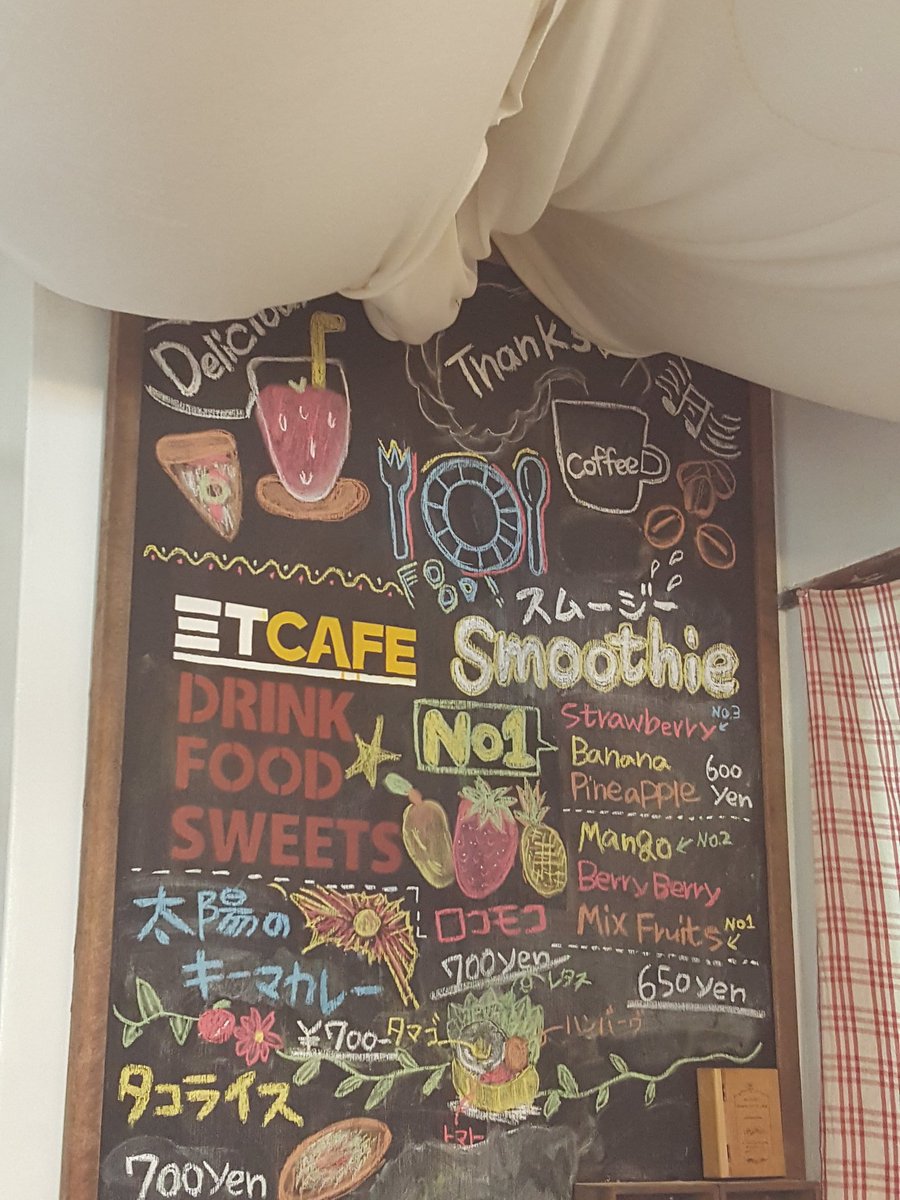 Delicious
Thanks
Coffee
FOOD!
ヨTCAFE
DRINK
FOOD
SWEETS
スムージー
Smoothie
No1
Strawberry No.3
Banana
Pineapple
600
yen
Mango No.2
Berry Berry
Mix Fruits No1
650yen
太陽の
キーマカレー
¥700-
ロコモコ
700yen
レタス
タマゴ
ハンバーグ
トマト
タコライス
700yen